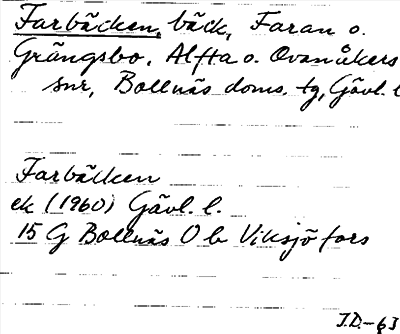 Farbäcken, bäck, Faran o.
Grängsbo, Alfta o. Ovanåkers
snr, Bollnäs doms. tg, Gävl. l
Farbäcken
ek (1960) Gävl. l.
15 G Bollnäs O b Viksjöfors
J.D-63